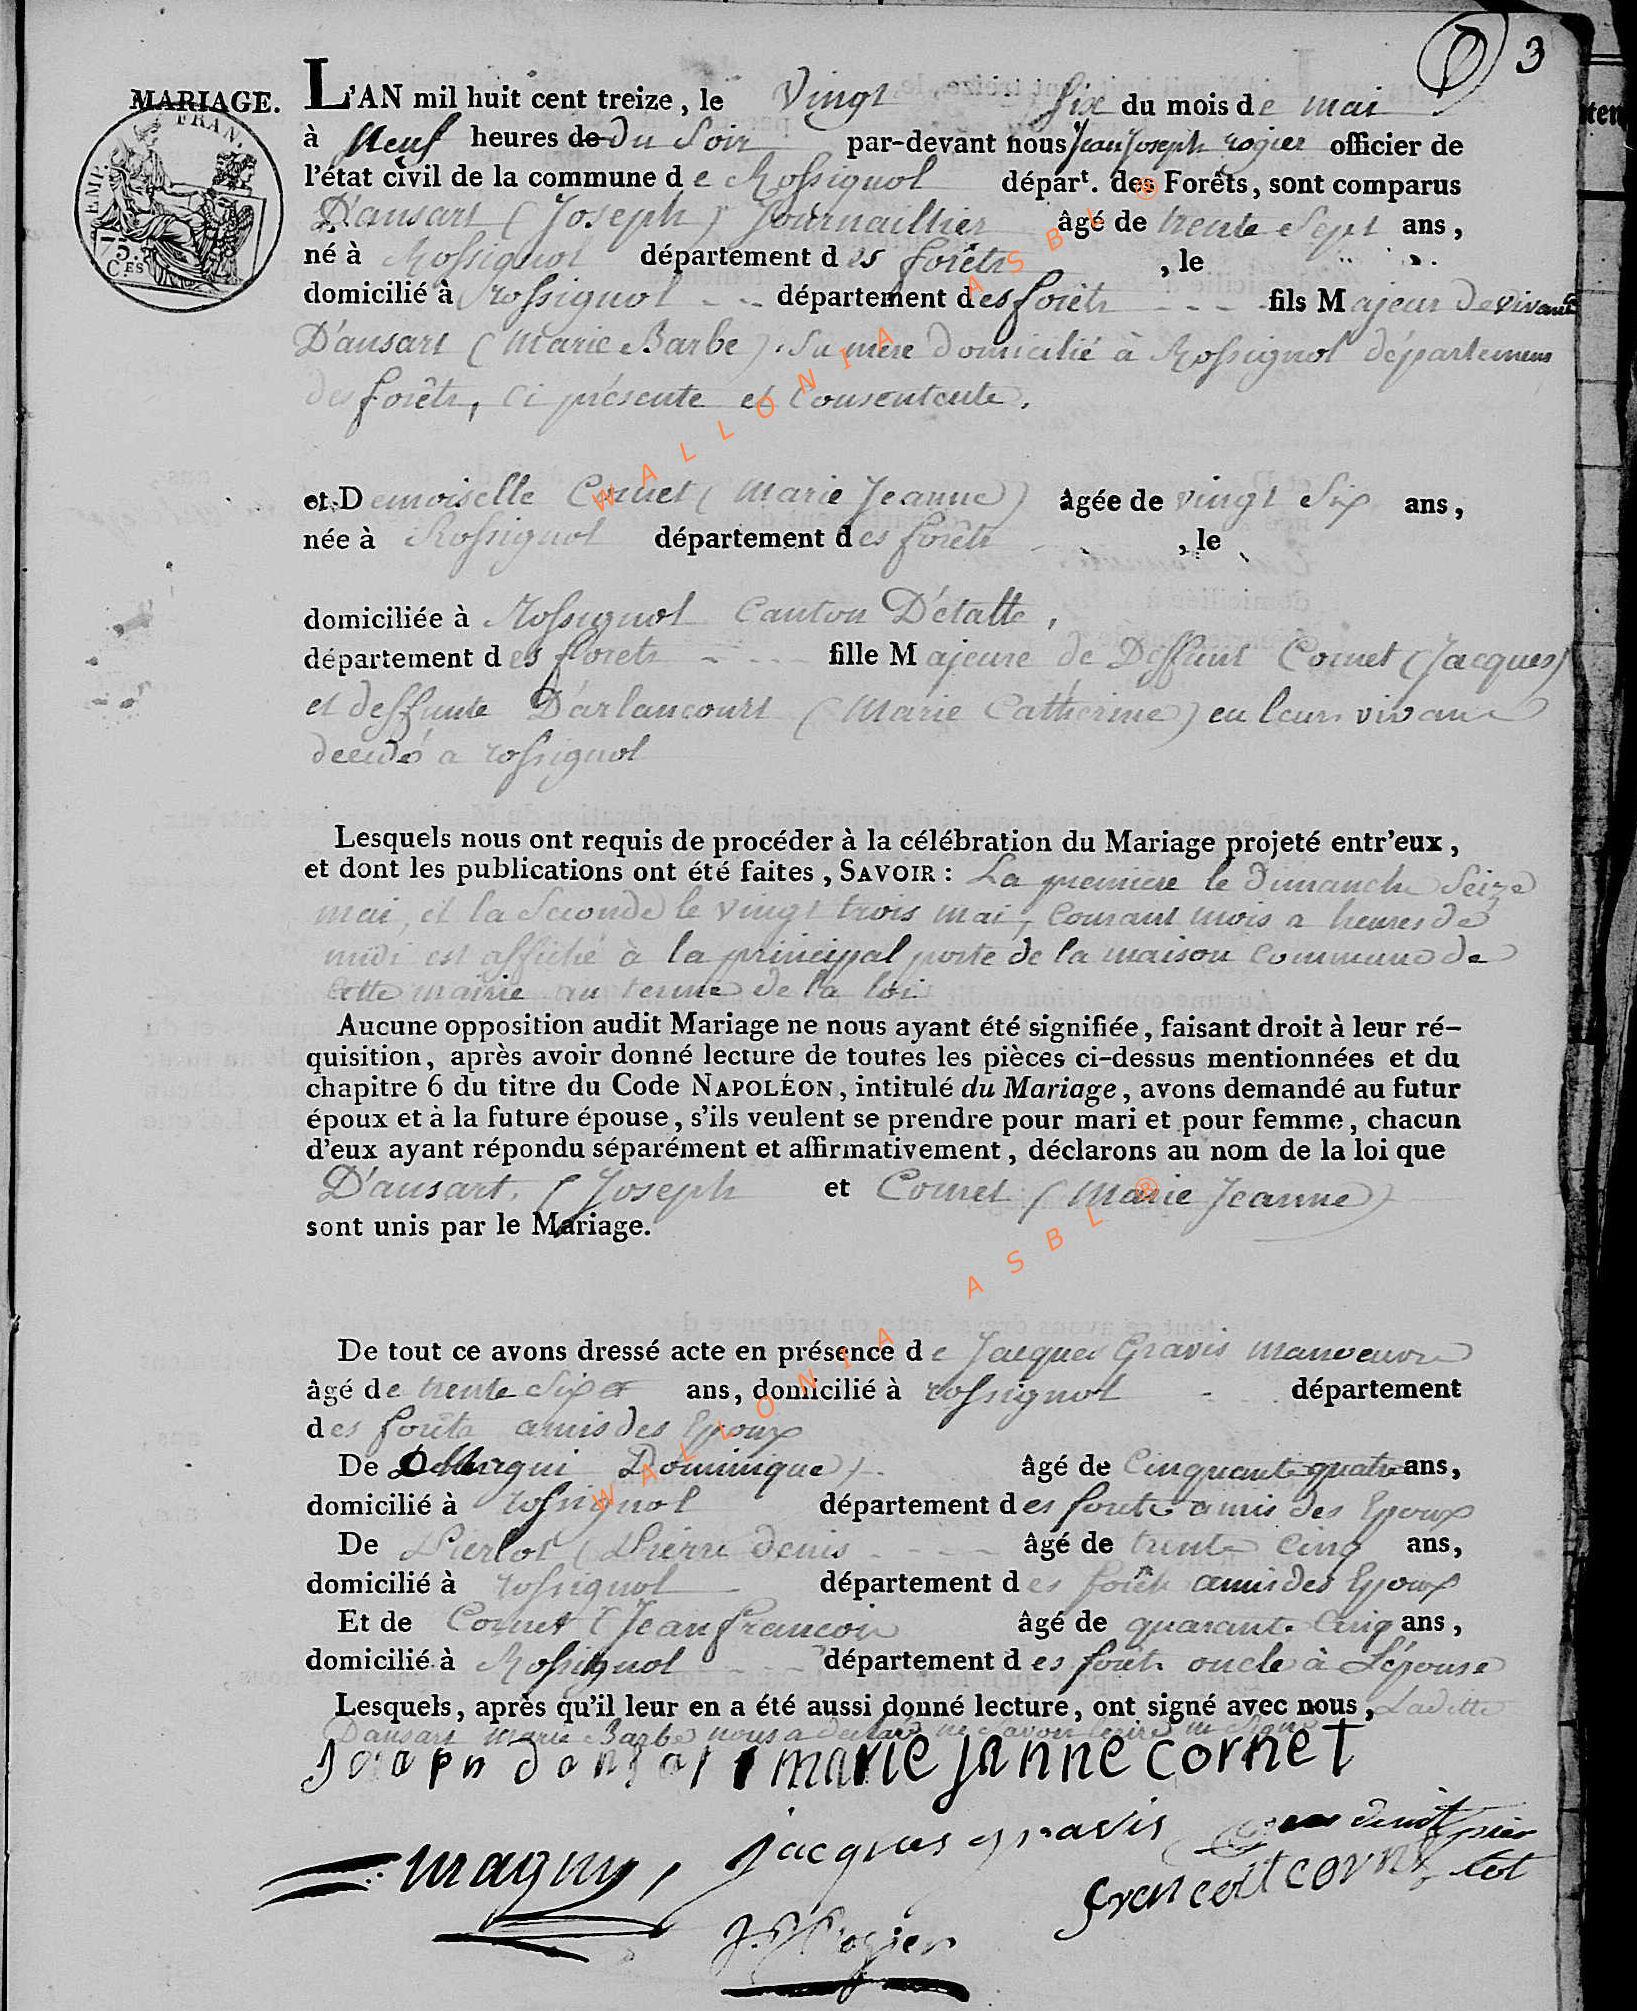 3
MARIAGE. L'AN mil huit cent treize, le Vingt Six du mois de mai
à Neuf heures de du Soir par-devant nous Jean Joseph rogier officier de
l'état civil de la commune de Rossignol départ. des Forêts, sont comparus
D'ansart (Joseph) Journaillier âgé de trente Sept ans,
né à Rossignol département des forêts, le
domicilié à Rossignol département des forêts fils Majeur de vivante
D'ansart (Marie Barbe). Sa mère Domicilié à Rossignol département
des forêts, ci présente et Consentente.
et Demoiselle Cornet (Marie Jeanne) âgée de vingt Six ans,
née à Rossignol département des forêts, le
domiciliée à Rossignol Canton D'étalle,
département des forets fille Majeure de Deffunt Cornet (Jacques)
et deffunte D'arlancourt (Marie Catherine) en leurs vivant
décédés a rossignol
Lesquels nous ont requis de procéder à la célébration du Mariage projeté entr'eux,
et dont les publications ont été faites, SAVOIR : La premiere le Dimanche Seize
mai, et la Seconde le vingt trois mai, Courant mois a heures de
midi est affiché à la principal porte de la maison Commune de
Cette mairie au terme de la loi
Aucune opposition audit Mariage ne nous ayant été signifiée, faisant droit à leur ré-
quisition, après avoir donné lecture de toutes les pièces ci-dessus mentionnées et du
chapitre 6 du titre du Code NAPOLÉON, intitulé du Mariage, avons demandé au futur
époux et à la future épouse, s'ils veulent se prendre pour mari et pour femme, chacun
d'eux ayant répondu séparément et affirmativement, déclarons au nom de la loi que
D'ansart. (Joseph et Cornet (Marie Jeanne)
sont unis par le Mariage.
De tout ce avons dressé acte en présence de Jacques Gravis manoeuvre
âgé de trente Six ans, domicilié à rossignol département
des forêts amis des Epoux
De Dominique) âgé de Cinquante quatre ans,
domicilié à rossignol département des forets amis des Epoux
De Pierlot (Pierre denis âgé de trente Cinq ans,
domicilié à rossignol département des forêts amis des Epoux
Et de Cornet (Jean francois âgé de quarante Cinq ans,
domicilié à Rossignol département des forêts oncle à L'épouse
Lesquels, après qu'il leur en a été aussi donné lecture, ont signé avec nous, Laditte
Dansart marie Barbe nous a declaré ne savoir Ecrire ni Signé
Joseph dansart marie janne cornet
magny, jacques gravis denis pier
francoit cornet lot
J. J. Rogier
EMP. FRAN.
75. CES
WALLONIA ASBL ®
WALLONIA ASBL ®